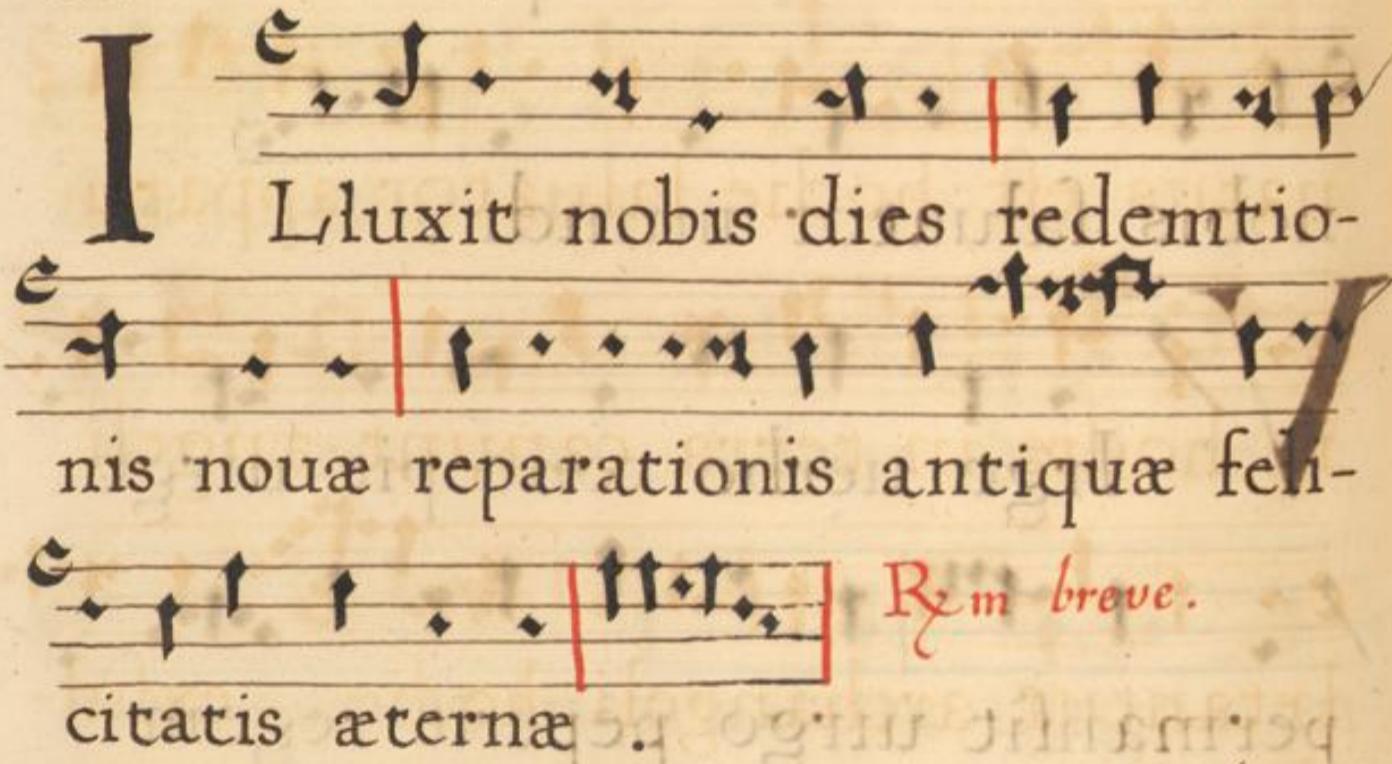 ILluxit nobis dies redemtio-
nis nouæ reparationis antiquæ feli-
citatis æternæ . ℟m breve.